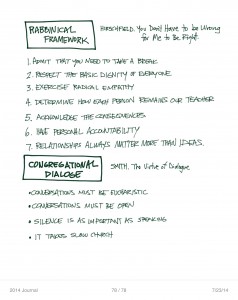 RABBINICAL
FRAMEWORK
HIRSCHFIELD. You Don't Have to be Wrong
for Me to Be Right.
1. ADMIT THAT YOU NEED TO TAKE A BREAK
2. RESPECT THE BASIC DIGNITY OF EVERYONE
3. EXERCISE RADICAL EMPATHY
4. DETERMINE HOW EACH PERSON REMAINS OUR TEACHER
5. ACKNOWLEDGE THE CONSEQUENCES
6. PERSONAL ACCOUNTABILITY
7. RELATIONSHIPS ALWAYS MATTER MORE THAN IDEAS.
CONGREGATIONAL
DIALOGE
SMITH. The Virtue of Dialogue
• CONVERSATIONS MUST BE EUCHARISTIC
• CONVERSATIONS MUST BE OPEN
• SILENCE IS AS IMPORTANT AS SPEAKING
• IT TAKES SLOW CHURCH
2014 Journal
78 / 78
7/23/14